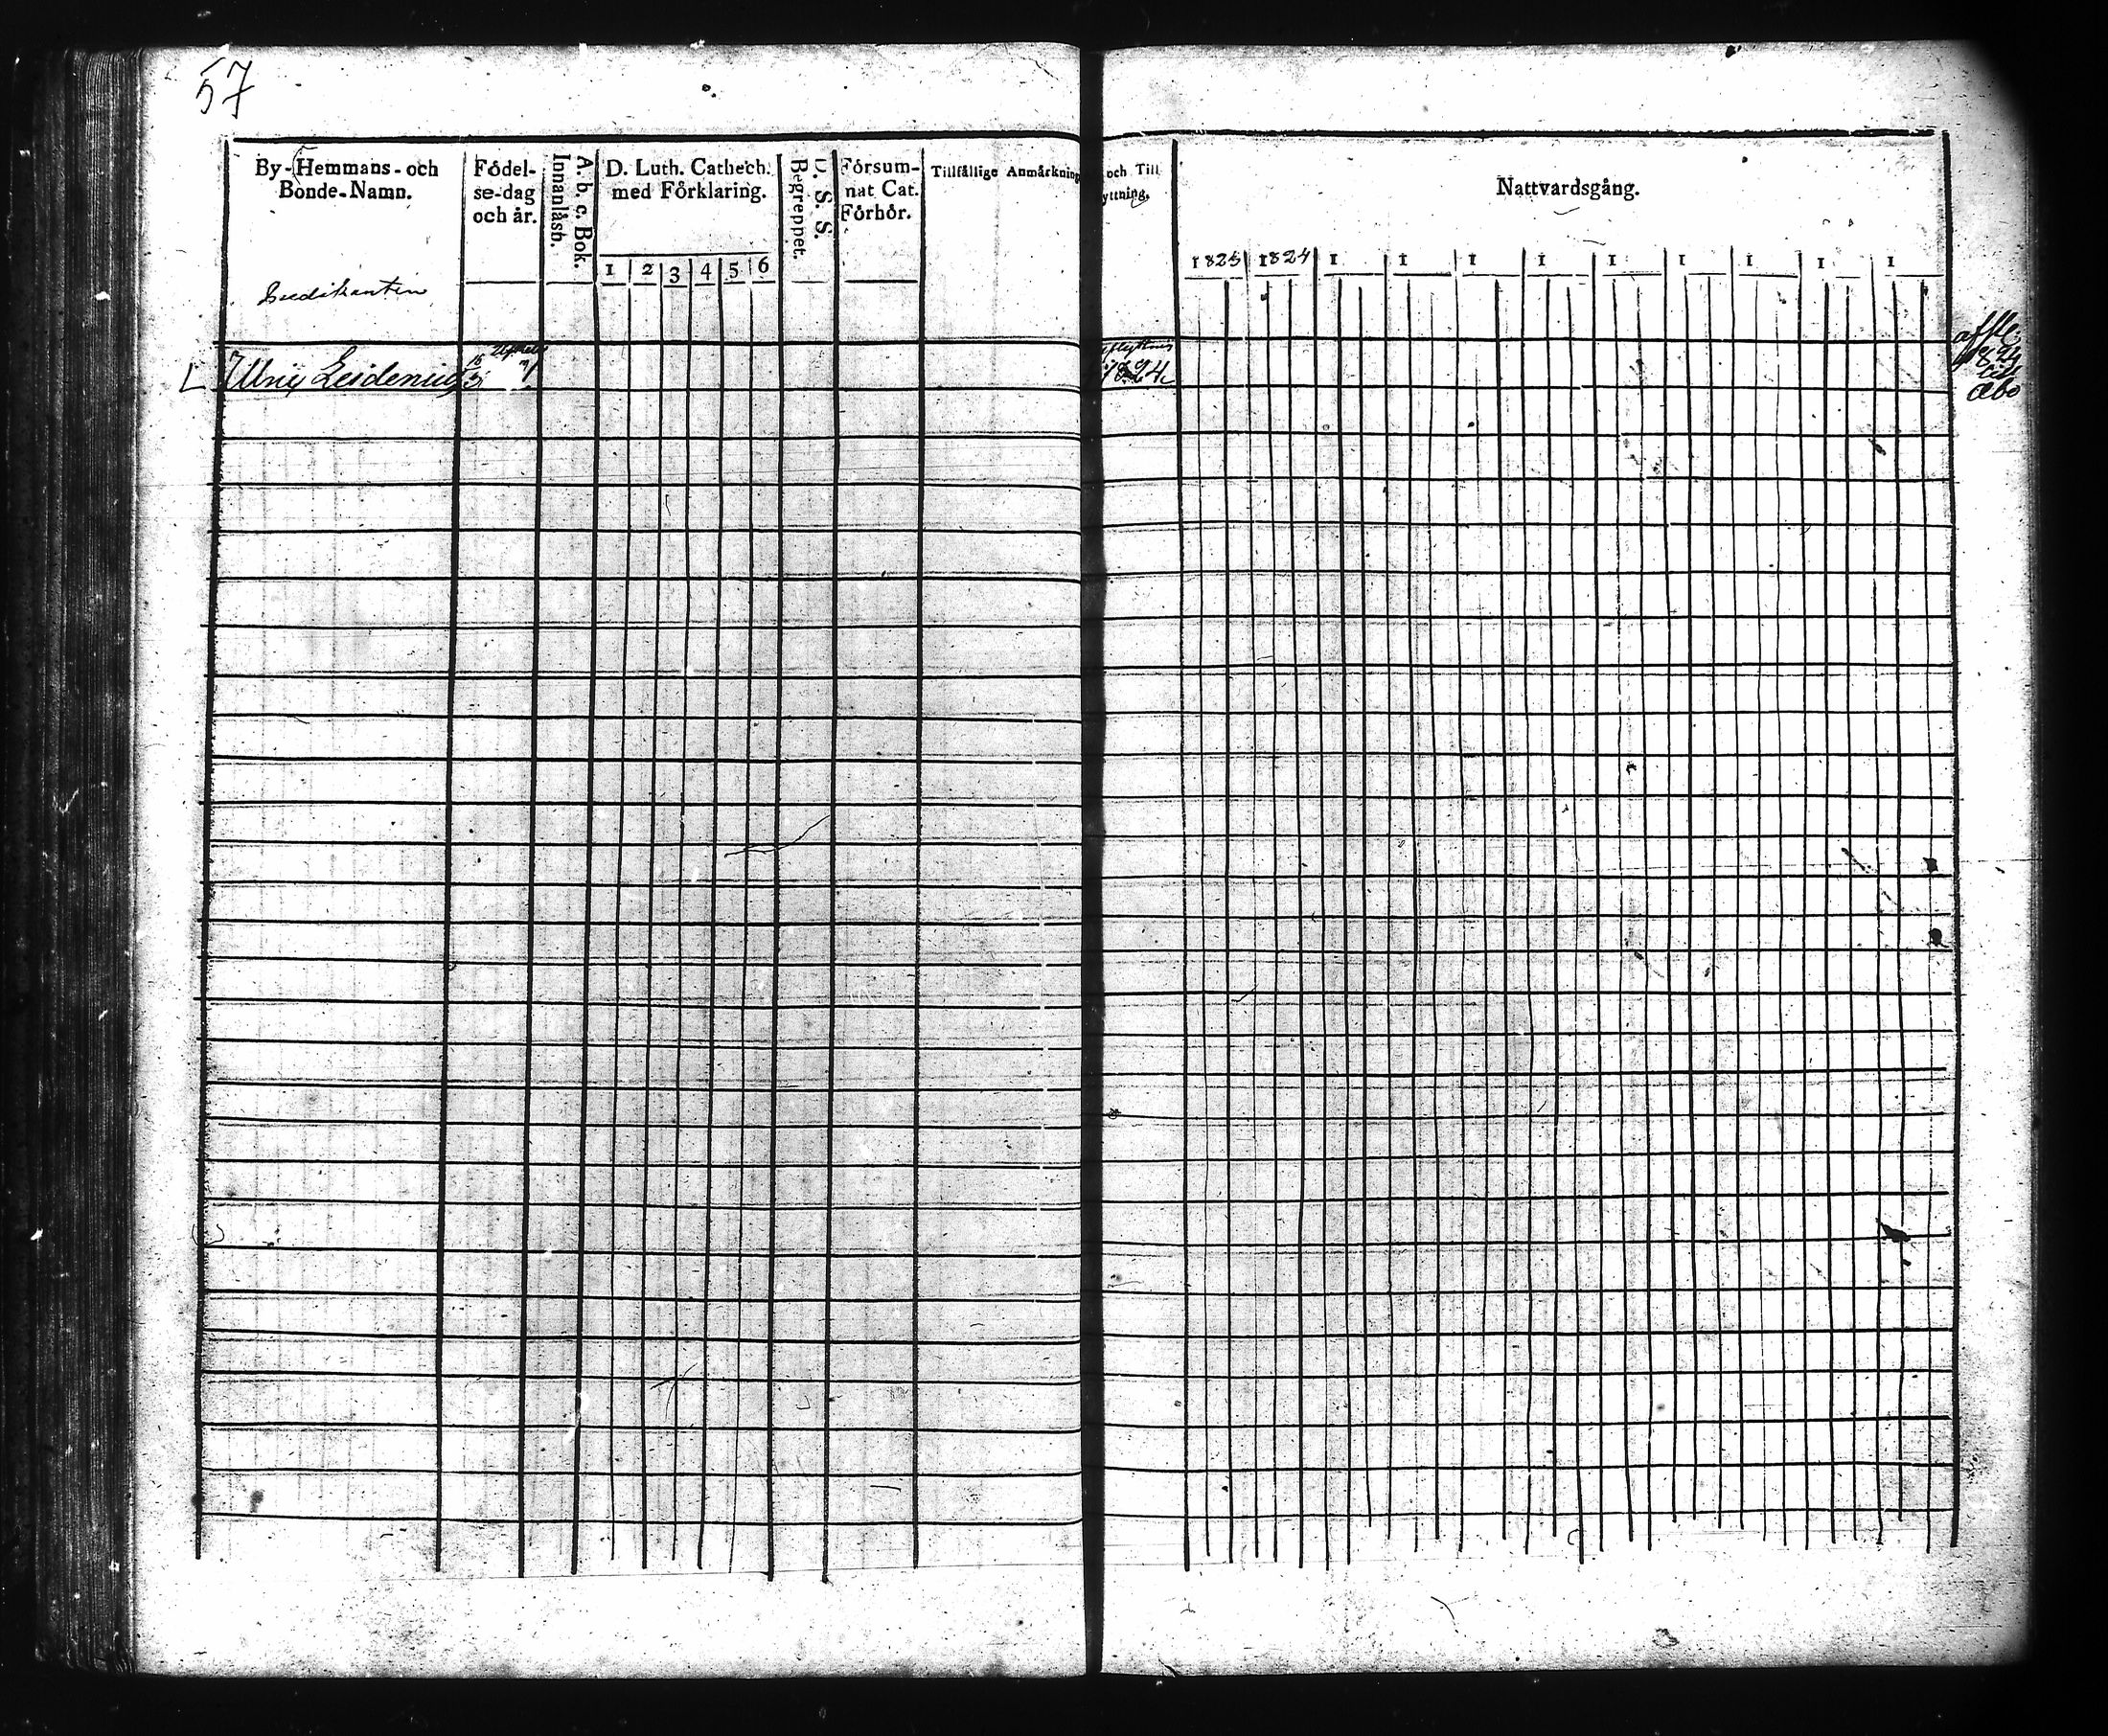 57
By-Hemmans-och
Bonde-Namn.
Födel-
se-dag
och år.
A. b. c. Bok.
Innanläsn.
D. Luth. Cathech.
med Förklaring.
1 2 3 4 5 6
D. S. S.
Begreppet.
Försum-
nat Cat.
Förhör.
Tillfällige Anmärkning
och Till
yttning.
Nattvardsgång.
1823 1824 1 1 1 1 1 1 1 1 1
Leidenius
1824
1824
till
Åbo